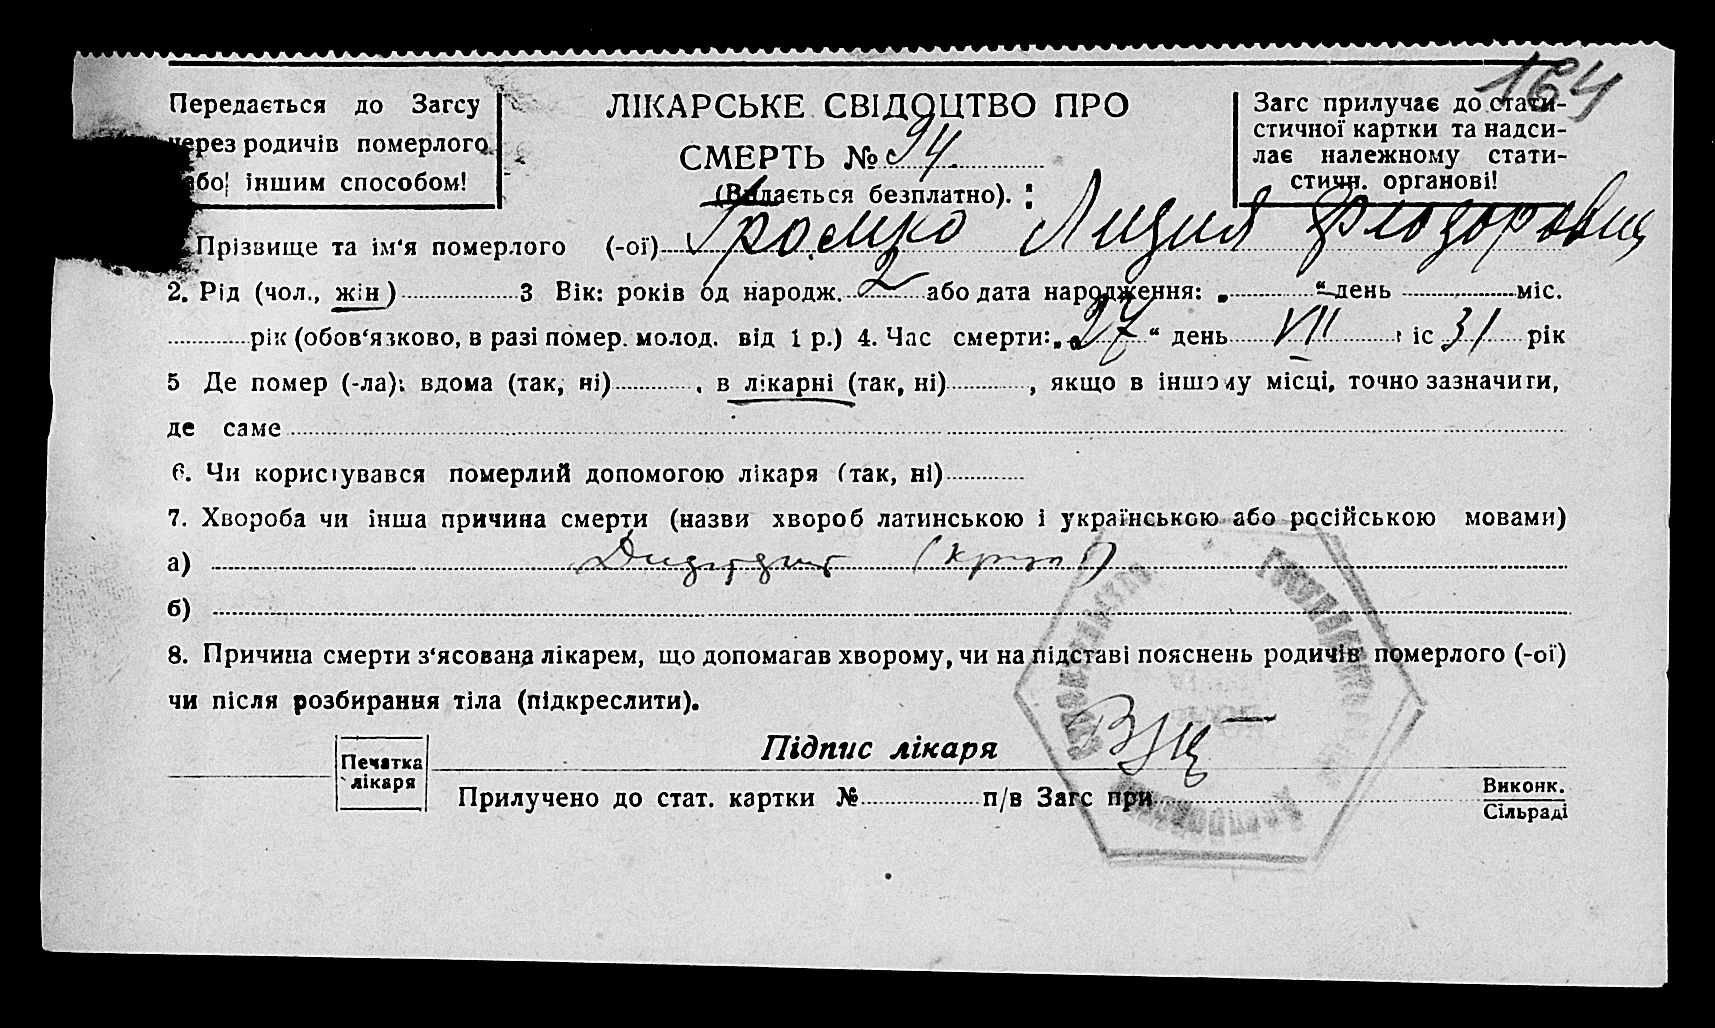 164
Передається до Загсу
через родичів померлого
або іншим способом!
ЛІКАРСЬКЕ СВІДОЦТВО ПРО
СМЕРТЬ № 94
(Видається безплатно).
Загс прилучає до стати-
стичної картки та надси-
лає належному стати-
стичн. органові!
Прізвище та ім'я померлого (-ої) Громко Лидия
2. Рід (чол., жін) 3 Вік: років од народж. 2 або дата народження: „ “ день міс.
рік (обов'язково, в разі помер. молод. від 1 р.) 4. Час смерти: „27“ день VII іс 31 рік
5 Де помер (-ла): вдома (так, ні) , в лікарні (так, ні) , якщо в іншому місці, точно зазначити,
де саме
6. Чи користувався померлий допомогою лікаря (так, ні)
7. Хвороба чи інша причина смерти (назви хвороб латинською і українською або російською мовами)
а)
б)
8. Причина смерти з'ясована лікарем, що допомагав хворому, чи на підставі пояснень родичів померлого (-ої)
чи після розбирання тіла (підкреслити).
Печатка
лікаря
Підпис лікаря
Прилучено до стат. картки № п/в Загс при
Виконк.
Сільраді